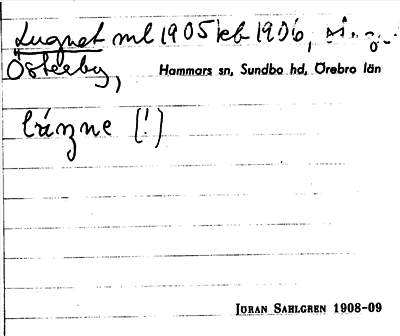 Lugnet ml 1905 keb 1906,
Österby, Hammars sn, Sundbo hd, Örebro län
(!)
JÖRAN SAHLGREN 1908-09